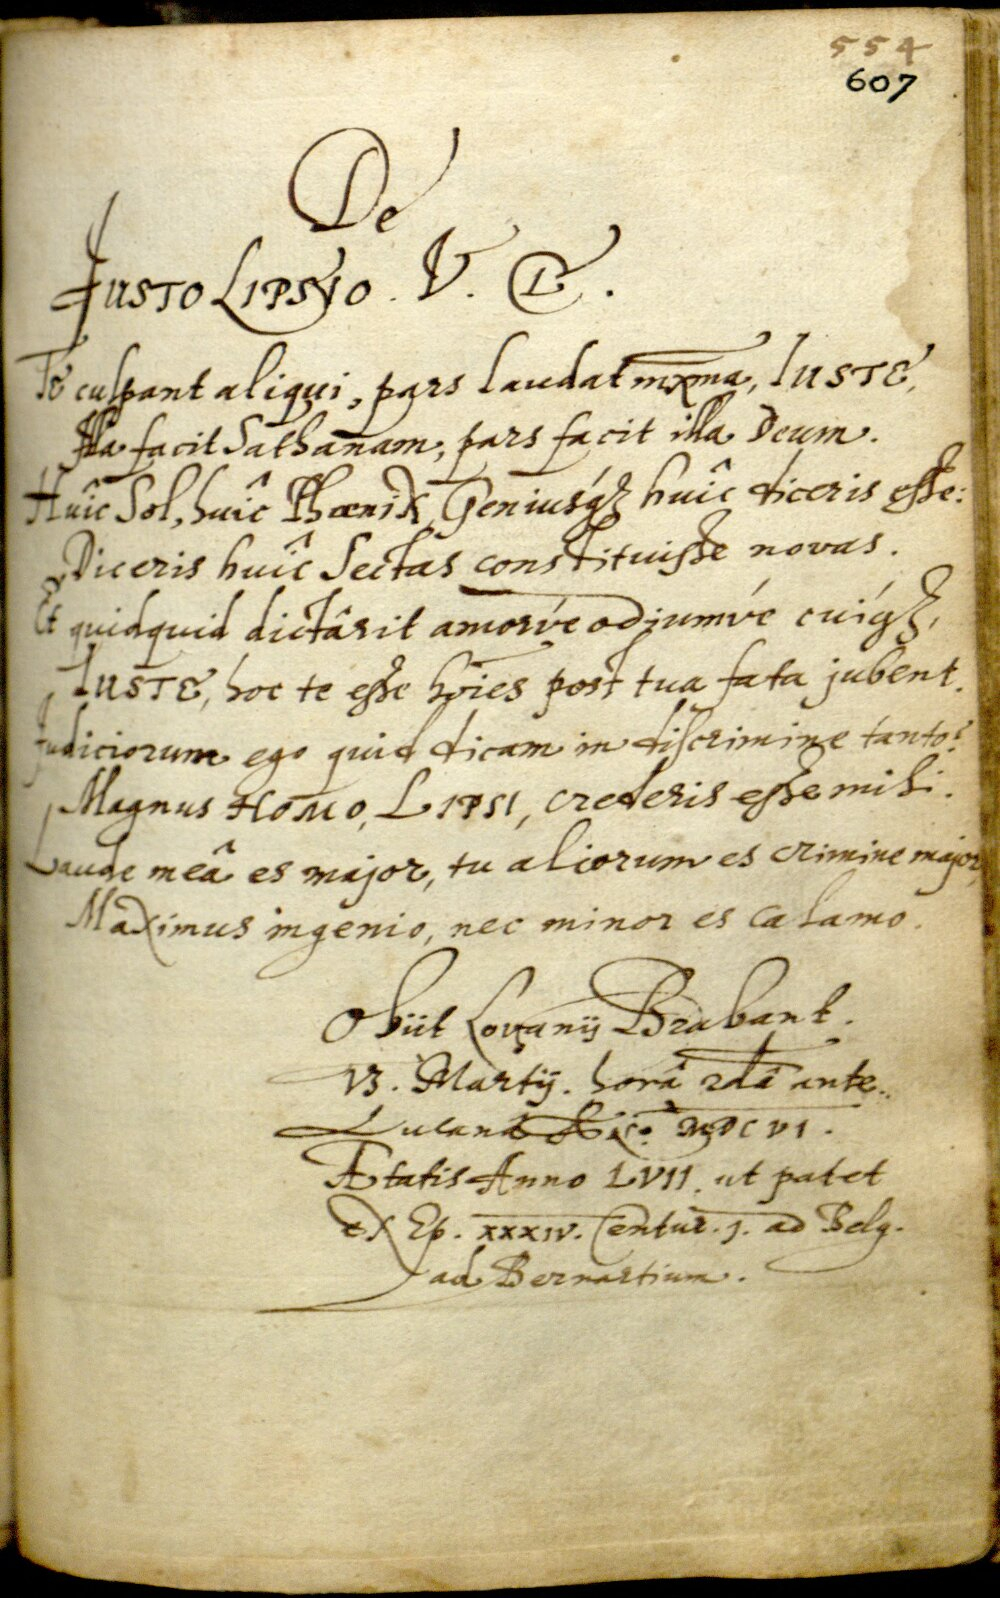 554
607
De
Justo Lipsio. V. C.
Te culpant aliqui, pars laudat mx̄ma, IUSTE,
Illa facit Sathanam, pars facit illa Deum.
Huîc Sol, huîc Phœnix, Geniusq́ꝫ huîc diceris esse:
Diceris huîc Sectas constituisse novas.
Et quidquid dictârit amorv́e odiumv́e cuíqꝫ,
IUSTE, hoc te esse hōies post tua fata jubent.
Judiciorum ego quid dicam in discrimine tanto?
Magnus HOMO, LIPSI, crederis esse mihi.
Laude meâ es major, tu aliorum es crimine major,
Maximus ingenio, nec minor es calamo.
Obiit Lovanij Brabant.
Martij. horâ 2dâ ante..
MDCVI.
Ætatis Anno LVII. ut patet
ex Ep. xxxiv. Centur. j. ad Belg.
ad Bernartium.